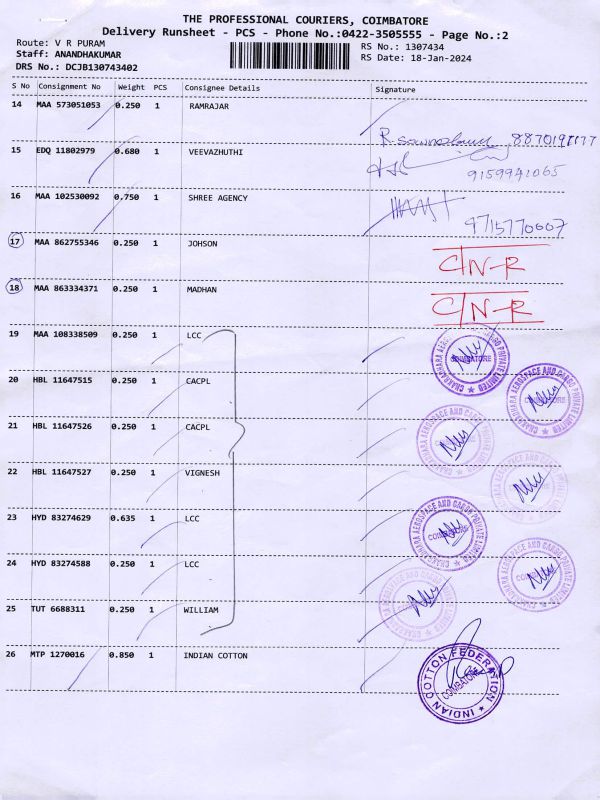 THE PROFESSIONAL COURIERS, COIMBATORE
Delivery Runsheet - PCS - Phone No.:0422-3505555 - Page No.:2
Route: V R PURAM
RS No.: 1307434
Staff: ANANDHAKUMAR
RS Date: 18-Jan-2024
DRS No.: DCJB130743402
S No Consignment No Weight PCS Consignee Details Signature
14 MAA 573051053 0.250 1 RAMRAJAR
15 EDQ 11802979 0.680 1 VEEVAZHUTHI
9159941065
16 MAA 102530092 0.750 1 SHREE AGENCY
9715770007
17 MAA 862755346 0.250 1 JOHSON
C/N-R
18 MAA 863334371 0.250 1 MADHAN
C/N-R
19 MAA 108338509 0.250 1 LCC
CHAKRADHARA AEROSPACE AND CARGO PRIVATE LIMITED
COIMBATORE
20 HBL 11647515 0.250 1 CACPL
CHAKRADHARA AEROSPACE AND CARGO PRIVATE LIMITED
21 HBL 11647526 0.250 1 CACPL
CHAKRADHARA AEROSPACE AND CARGO PRIVATE LIMITED
22 HBL 11647527 0.250 1 VIGNESH
CHAKRADHARA AEROSPACE AND CARGO PRIVATE LIMITED
23 HYD 83274629 0.635 1 LCC
CHAKRADHARA AEROSPACE AND CARGO PRIVATE LIMITED
24 HYD 83274588 0.250 1 LCC
CHAKRADHARA AEROSPACE AND CARGO PRIVATE LIMITED
25 TUT 6688311 0.250 1 WILLIAM
CHAKRADHARA AEROSPACE AND CARGO PRIVATE LIMITED
26 MTP 1270016 0.850 1 INDIAN COTTON
INDIAN COTTON FEDERATION
COIMBATORE